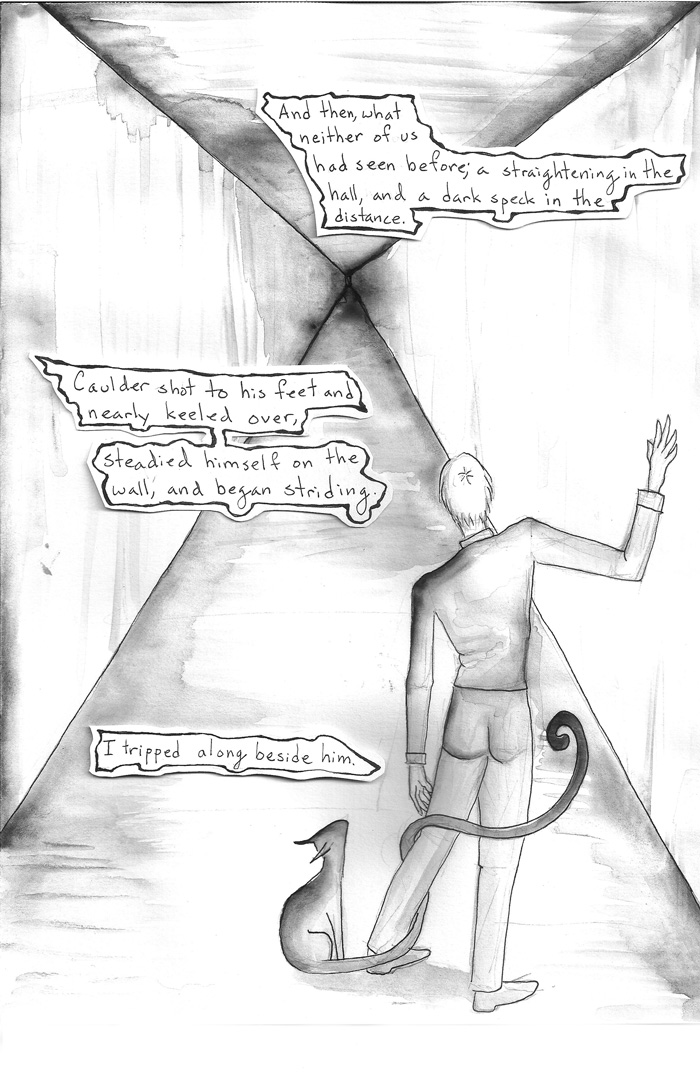 And then, what
neither of us
had seen before; a straightening in the
hall, and a dark speck in the
distance.
Caulder shot to his feet and
nearly keeled over,
steadied himself on the
wall, and began striding.
I tripped along beside him.